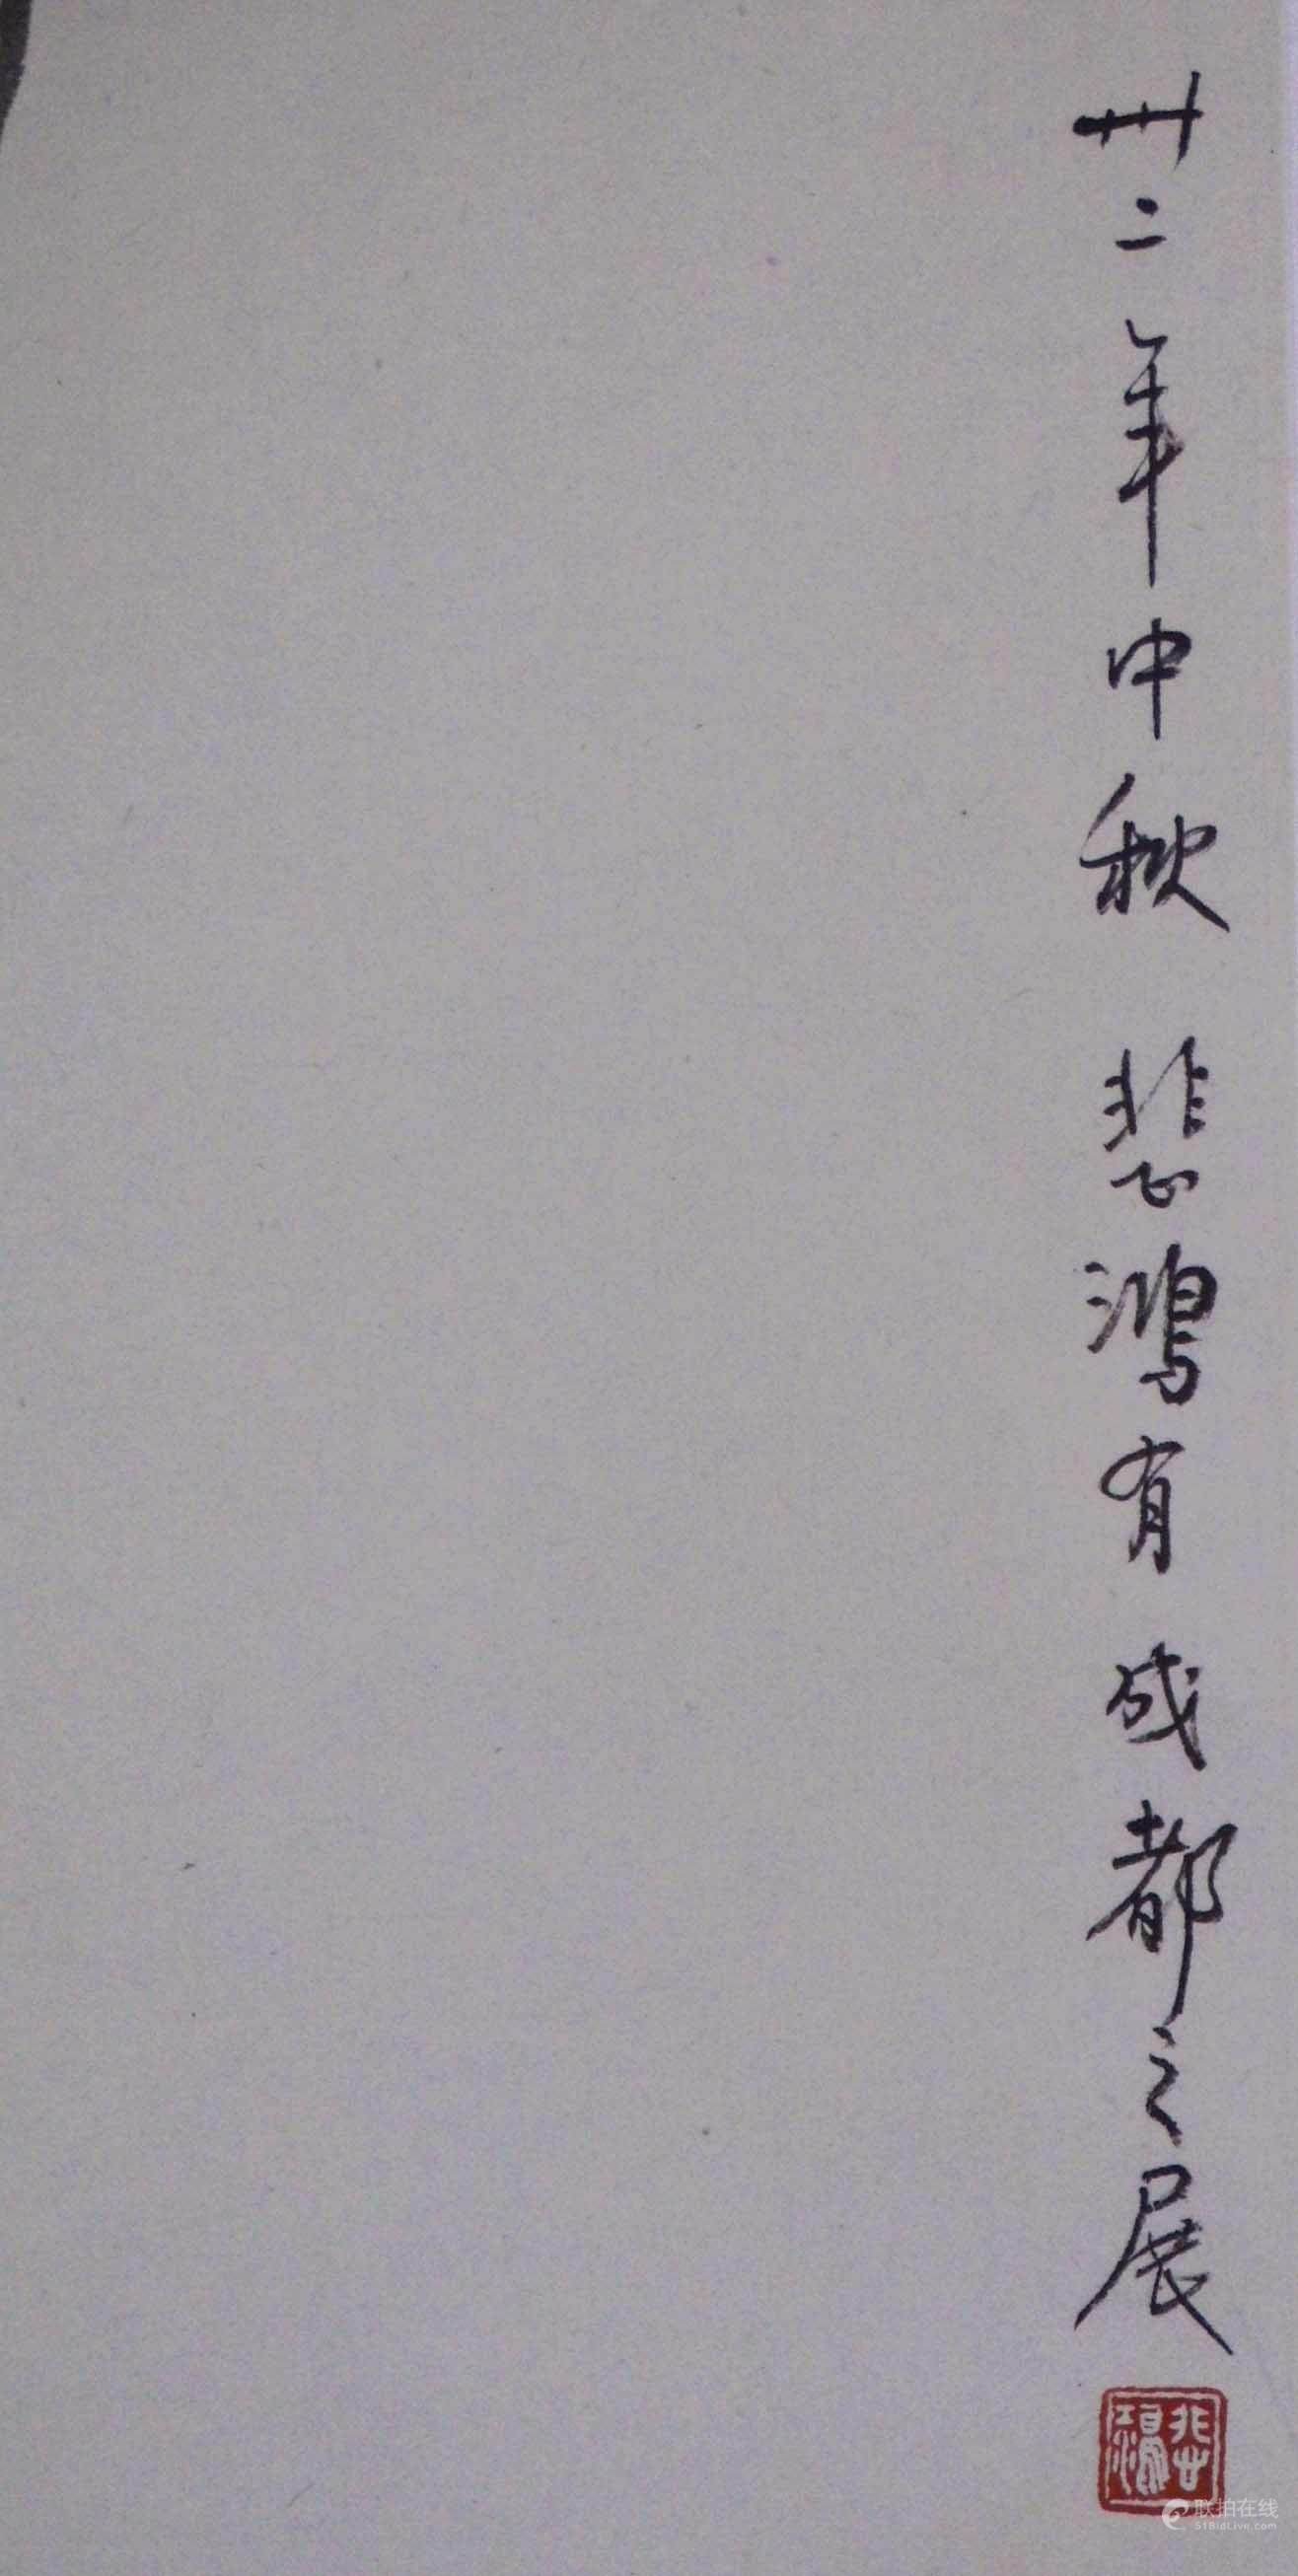 卅二年中秋 悲鸿有成都之展
悲鴻
联拍在线
51BidLive.com